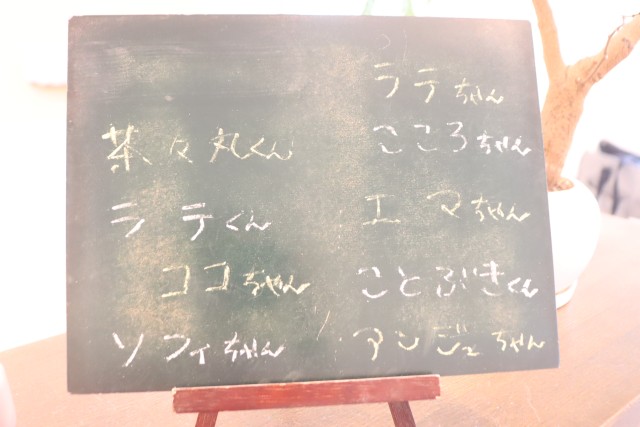 ラテちゃん
茶々丸くん
こころちゃん
ラテくん
エマちゃん
ココちゃん
ことぶきくん
ソフィちゃん
アンジュちゃん